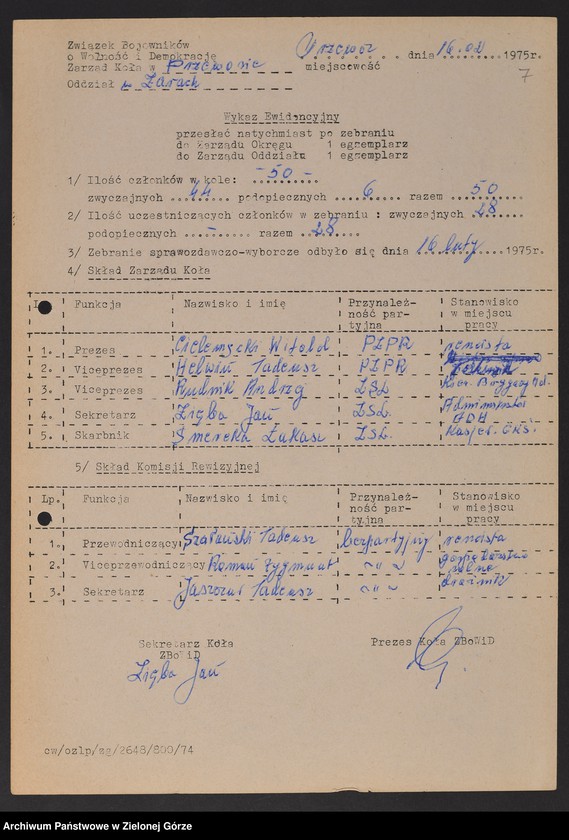 Związek Bojowników
o Wolność i Demokrację
Zarząd Koła w Przewozie
Oddział w Żarach
Przewóz dnia 16.02 1975r.
miejscowość
7
Wykaz Ewidencyjny
przesłać natychmiast po zebraniu
do Zarządu Okręgu 1 egzemplarz
do Zarządu Oddziału 1 egzemplarz
1/ Ilość członków w kole: - 50 -
zwyczajnych 44 podopiecznych 6 razem 50
2/ Ilość uczestniczących członków w zebraniu : zwyczajnych 28
podopiecznych - razem 28
3/ Zebranie sprawozdawczo-wyborcze odbyło się dnia 16 luty 1975r.
4/ Skład Zarządu Koła
Funkcja Nazwisko i imię Przynależność partyjna Stanowisko w miejscu pracy
1. Prezes Witold PZPR rencista
2. Viceprezes Helwin Tadeusz PZPR
3. Viceprezes Rudnik Andrzej ZSL
4. Sekretarz Zięba Jan ZSL
5. Skarbnik Smereka Łukasz ZSL
5/ Skład Komisji Rewizyjnej
Lp. Funkcja Nazwisko i imię Przynależność partyjna Stanowisko w miejscu pracy
1. Przewodniczący Tadeusz bezpartyjny rencista
2. Viceprzewodniczący Roman Zygmunt -"-
3. Sekretarz Tadeusz -"-
Sekretarz Koła
ZBoWiD
Zięba Jan
Prezes Koła ZBoWiD
cw/ozlp/zg/2648/800/74
Archiwum Państwowe w Zielonej Górze